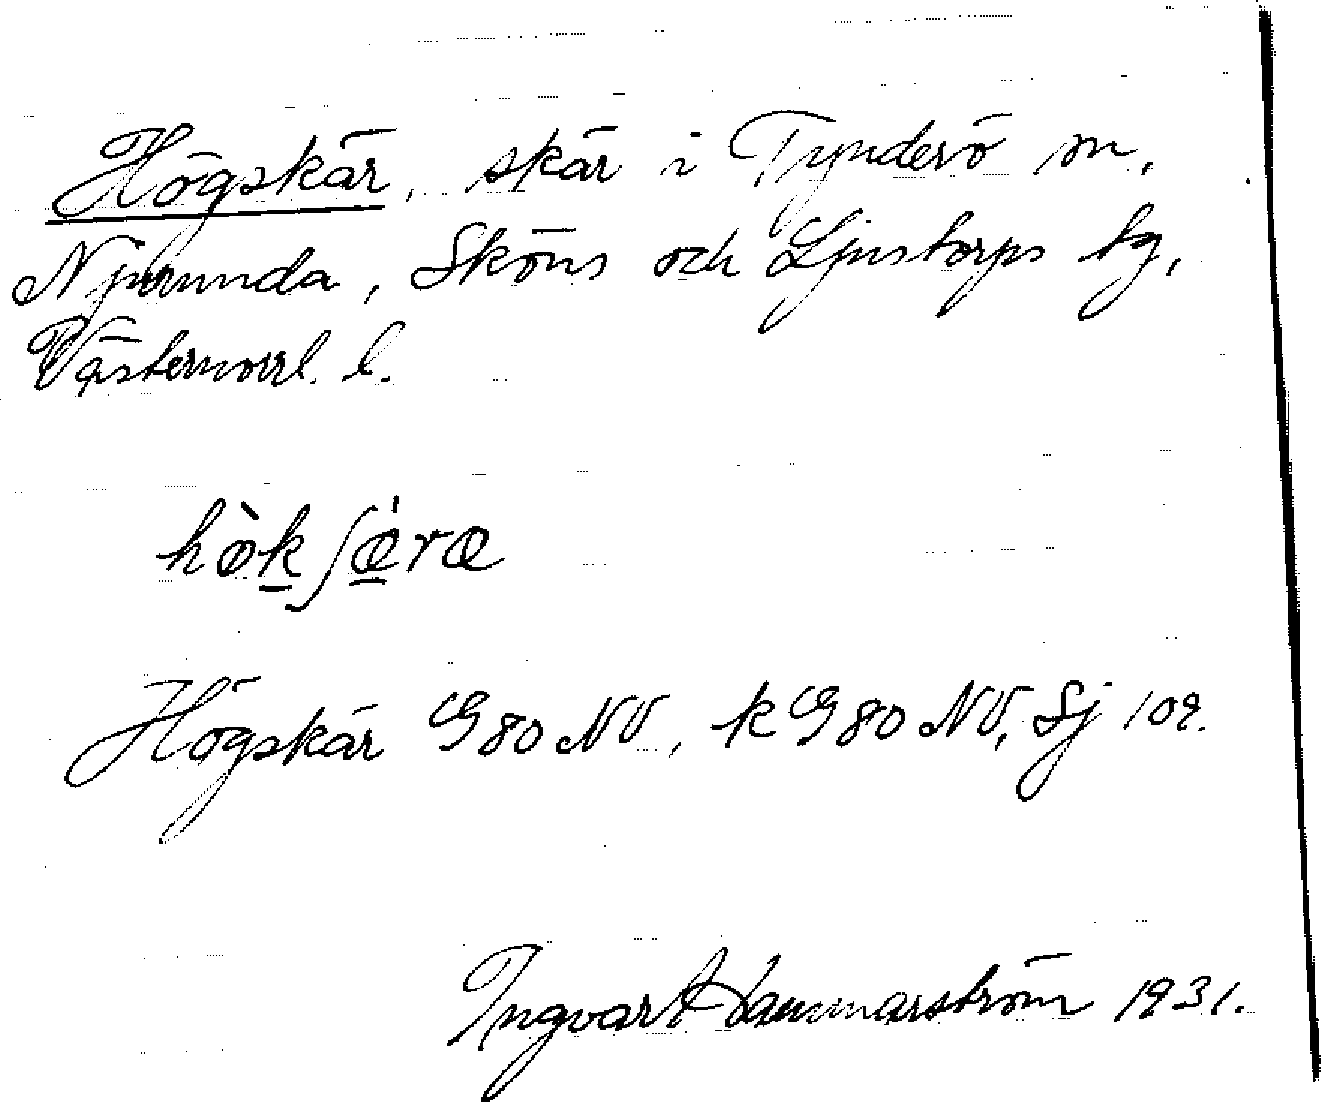 Högskär, skär i Tynderö sn,
Njurunda, Sköns och Ljustorps tg,
Västernorrl. l.
hò̱kʃǽ̱ræ
Högskär G80NV, k G80 NV, Sj 109.
Ingvar Hammarström 1931.